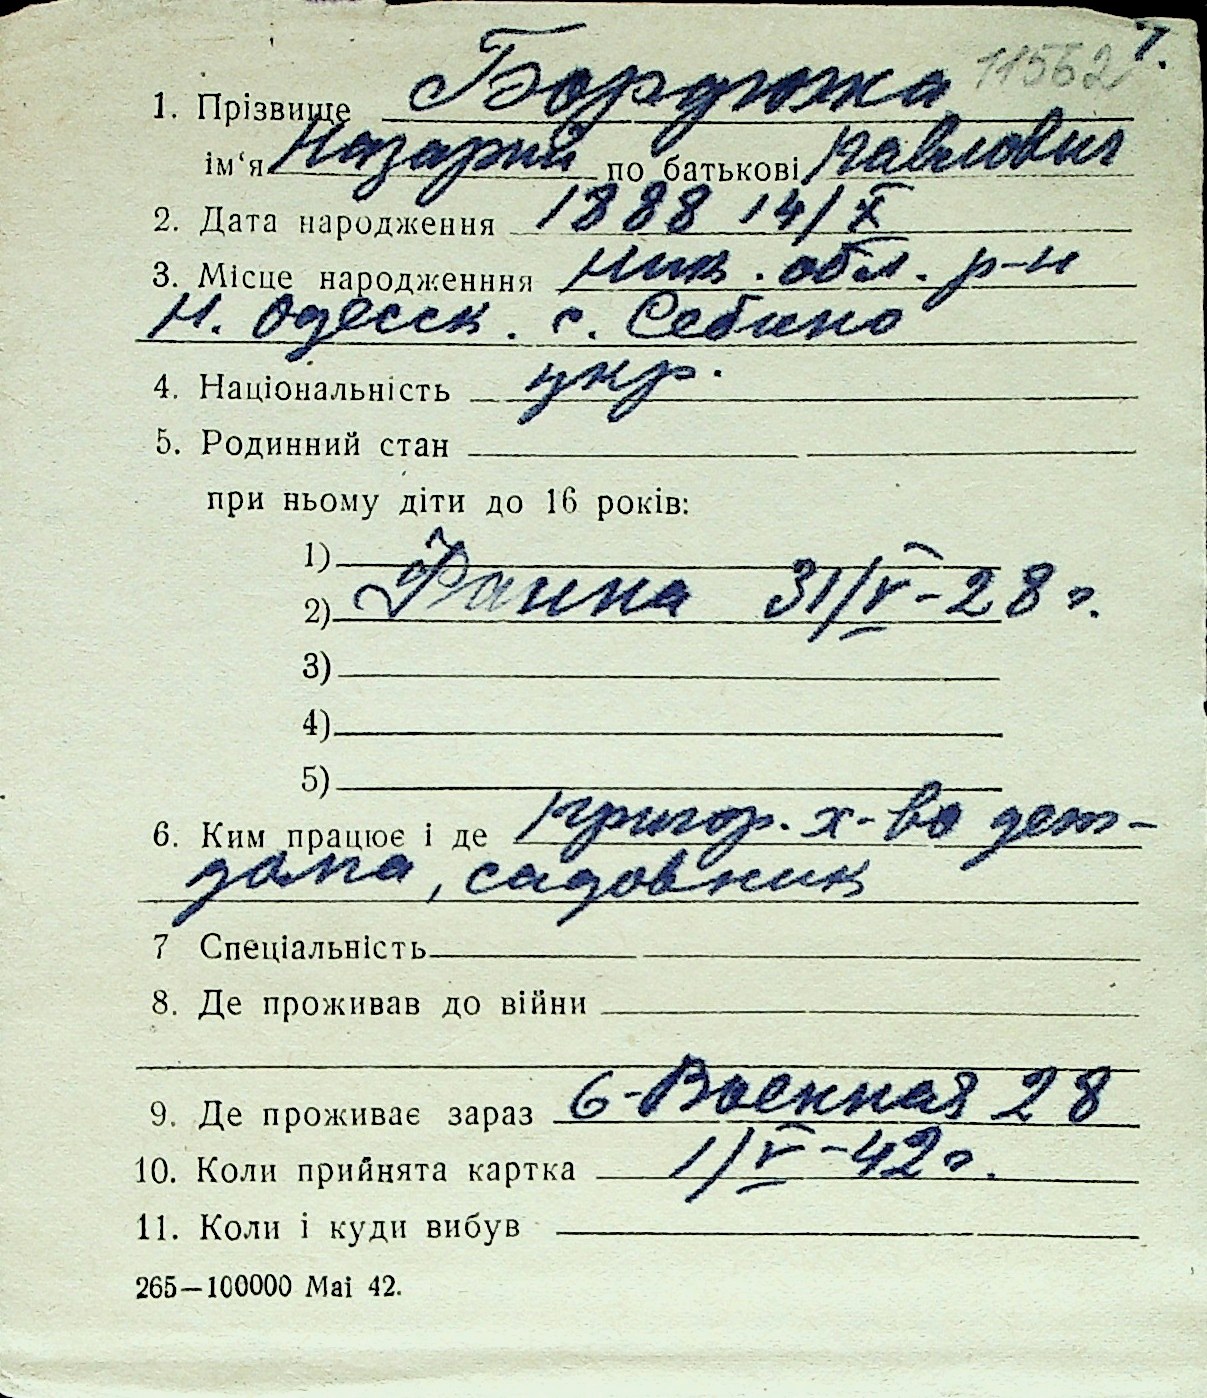 11562 7.
1. Прізвище Бордюжа
ім‘я Назарий по батькові Павлович
2. Дата народження 1888 14/X
3. Місце народженння Ник. обл. р-н
Н. Одесск. с. Себино
4. Національність укр.
5. Родинний стан
при ньому діти до 16 років:
1)
2) Фаина 31/V-28 г.
3)
4)
5)
6. Ким працює і де Пригор. х-во дет-
дома, садовник
7 Спеціальність
8. Де проживав до війни
9. Де проживає зараз 6-Военная 28
10. Коли прийнята картка 1/V-42 г.
11. Коли і куди вибув
265—100000 Mai 42.